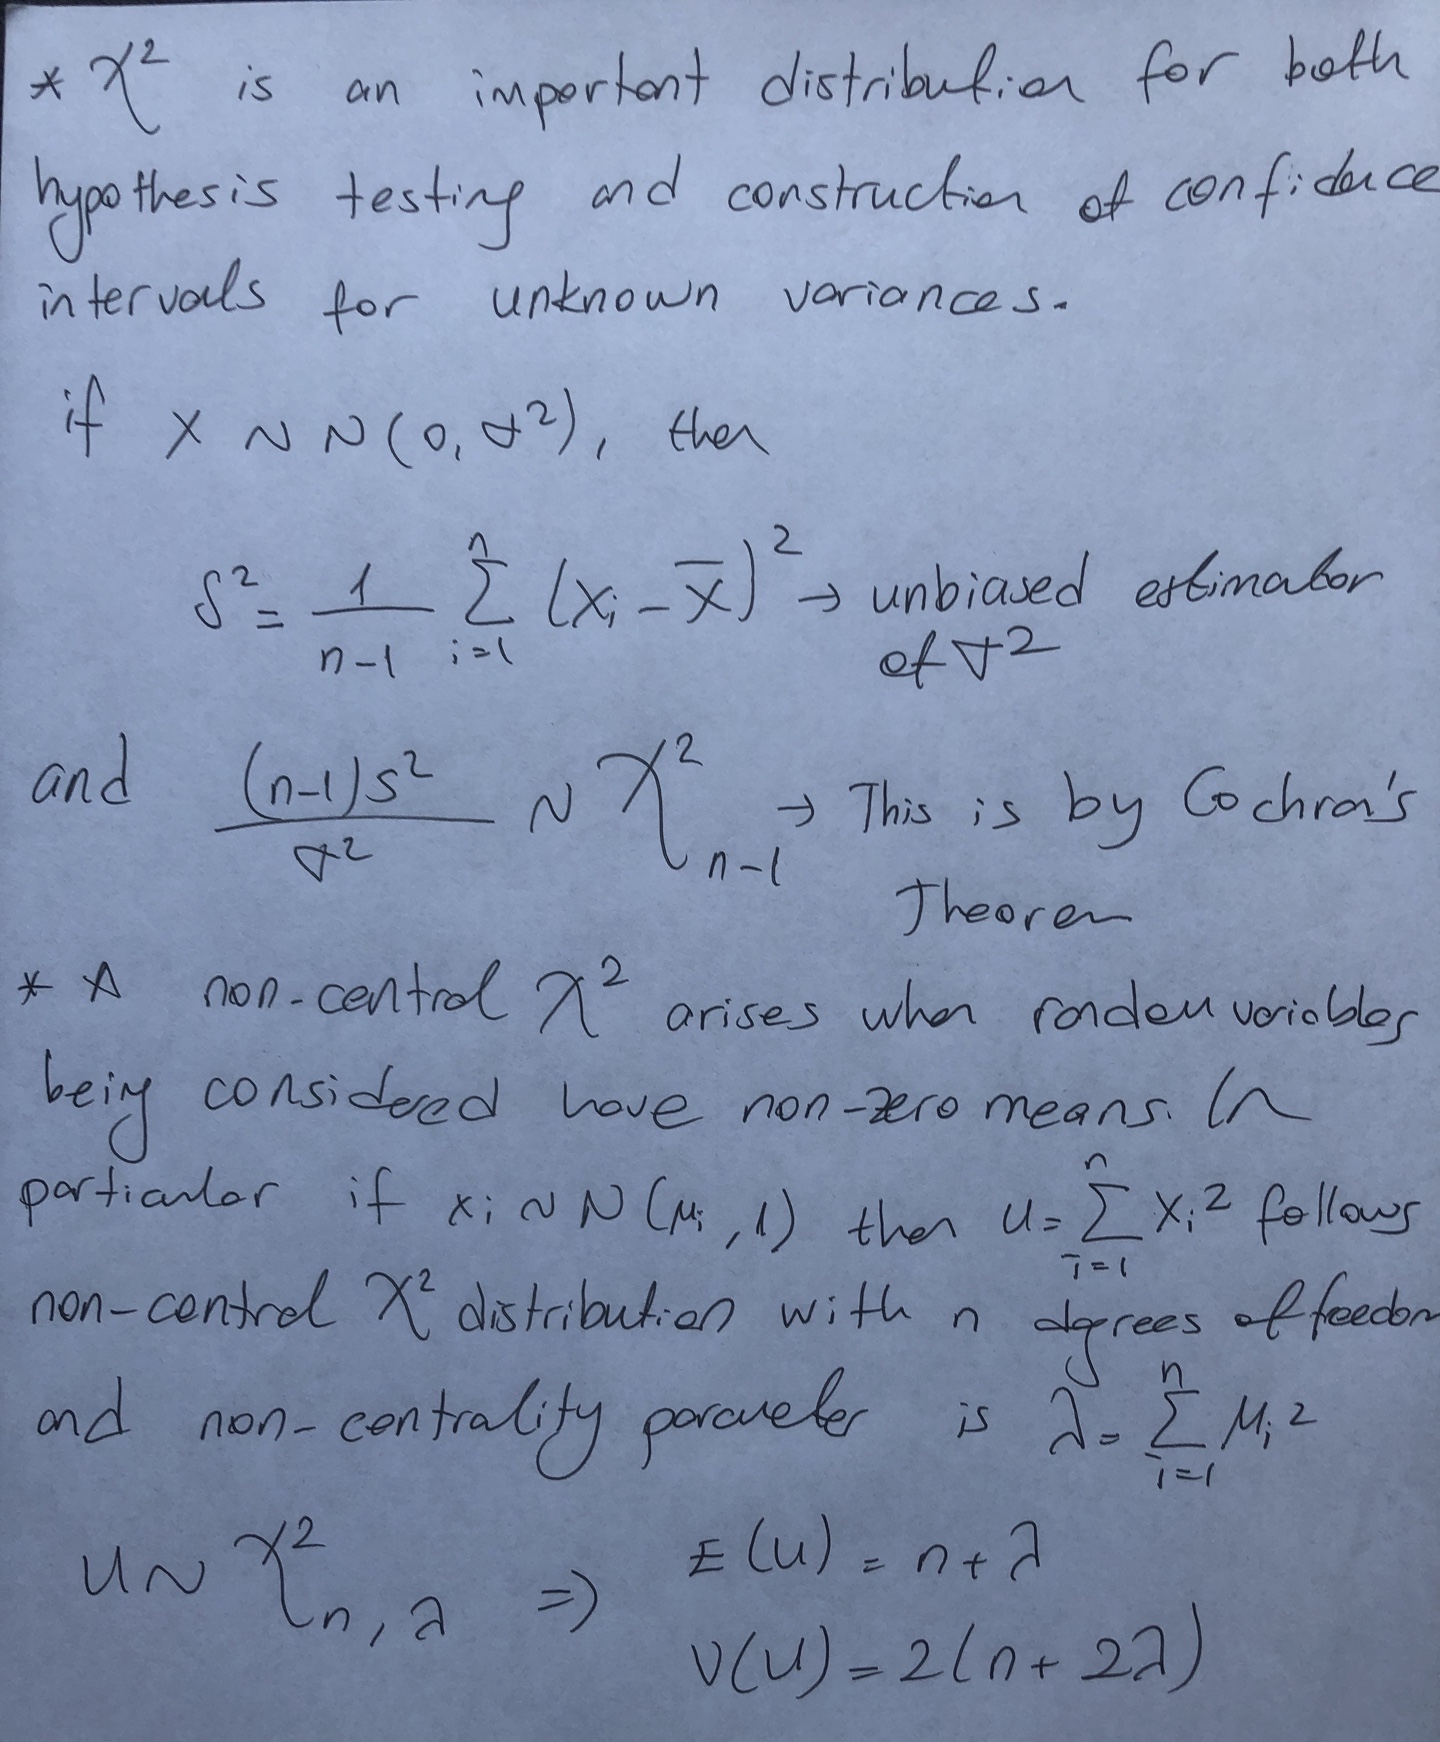 * χ² is an important distribution for both
hypothesis testing and construction of confidence
intervals for unknown variances.
if X ~ N(0, σ²), then
S² = 1/(n-1) Σ_{i=1}^{n} (x_i - x̄)² → unbiased estimator
of σ²
and (n-1)s²/σ² ~ χ²_{n-1} → This is by Cochran's
Theorem
* A non-central χ² arises when random variables
being considered have non-zero means. In
particular if x_i ~ N(μ_i, 1) then u = Σ_{i=1}^{n} x_i² follows
non-central χ² distribution with n degrees of feedom
and non-centrality parameter is λ = Σ_{i=1}^{n} μ_i²
U ~ χ²_{n,λ} => E(U) = n + λ
V(U) = 2(n + 2λ)